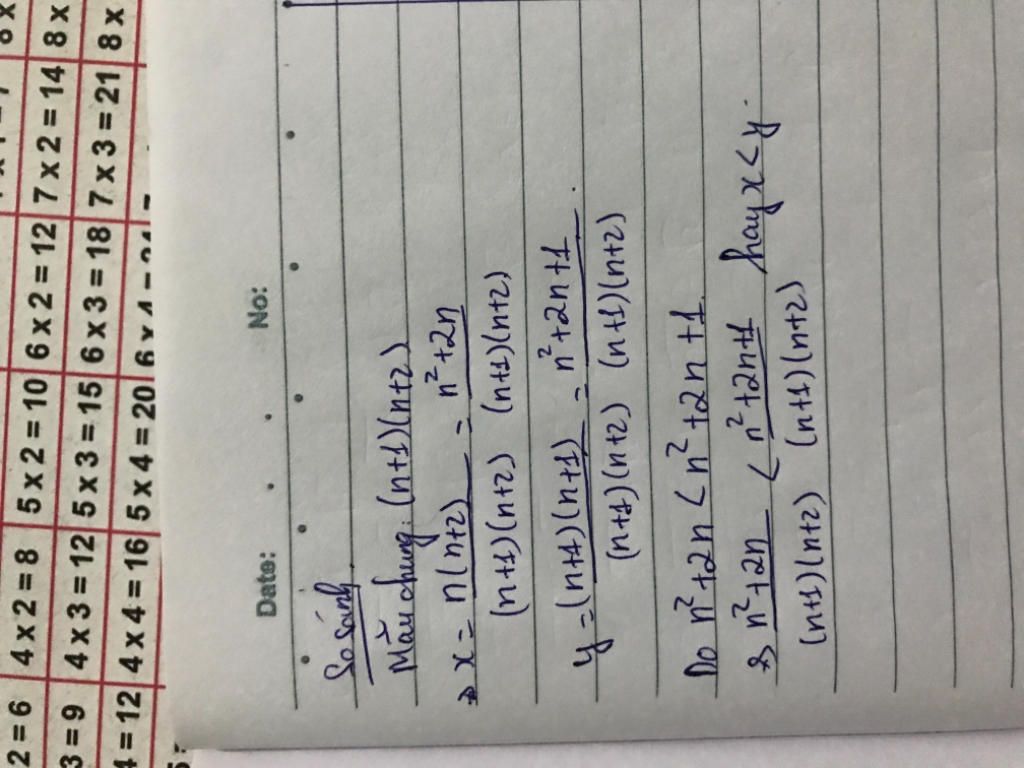 2 = 6 4 x 2 = 8 5 x 2 = 10 6 x 2 = 12 7 x 2 = 14 8 x
3 = 9 4 x 3 = 12 5 x 3 = 15 6 x 3 = 18 7 x 3 = 21 8 x
4 = 12 4 x 4 = 16 5 x 4 = 20
Date: No:
So sánh
Mẫu chung: (n+1)(n+2)
⇒ x = n(n+2)/(n+1)(n+2) = n²+2n/(n+1)(n+2)
y = (n+1)(n+1)/(n+1)(n+2) = n²+2n+1/(n+1)(n+2).
Do n²+2n < n²+2n+1
⇒ n²+2n/(n+1)(n+2) < n²+2n+1/(n+1)(n+2) hay x < y.